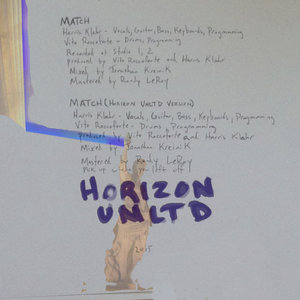 MATCH
Harris Klahr - Vocals, Guitar, Bass, Keyboards, Programming
Vito Roccoforte - Drums, Programming
Recorded at Studio 1, 2
produced by Vito Roccoforte and Harris Klahr
Mixed by Jonathan Kreinik
Mastered by Randy LeRoy
MATCH (HORIZON UNLTD VERSION)
Harris Klahr - Vocals, Guitar, Bass, Keyboards, Programming
Vito Roccoforte - Drums, Programming
produced by Vito Roccoforte and Harris Klahr
Mixed by Jonathan Kreinik
Mastered by Randy LeRoy
Pick up where you left off
HORIZON
UNLTD
2015